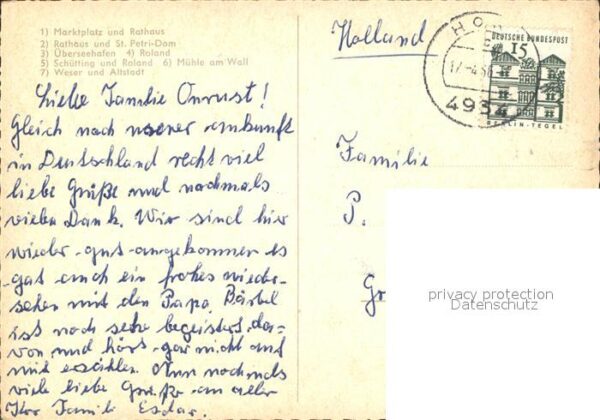 1) Marktplatz und Rathaus
2) Rathaus und St. Petri-Dom
3) Überseehafen 4) Roland
5) Schütting und Roland 6) Mühle am Wall
7) Weser und Altstadt
Liebe Familie Onrust!
Gleich nach unserer ankunft
in Deutschland recht viel
liebe Grüße und nochmals
vielen Dank. Wir sind hier
wieder gut angekommen es
gab auch ein frohes wieder-
sehen mit den Papa Bärbel
ist noch sehr begeistert da-
von und hört gar nicht auf
mit erzählen. Nun nochmals
viele liebe Grüße an alle
Ihre Famili
Holland
DEUTSCHE BUNDESPOST
15
BERLIN-TEGEL
4934
Familie
P.
privacy protection
Datenschutz